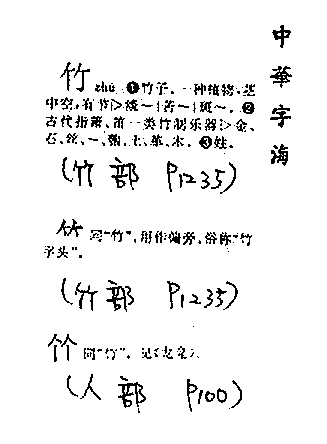 中華字海
竹 zhú ❶竹子。一种植物,茎
中空,有节▷绿~|苦~|斑~。❷
古代指箫、笛一类竹制乐器▷金、
石、丝、~、匏、土、革、木。❸姓。
(竹部 P1235)
⺮ 同“竹”,用作偏旁,俗称“竹
字头”。
(竹部 P1235)
同“竹”。见
(人部 P100)